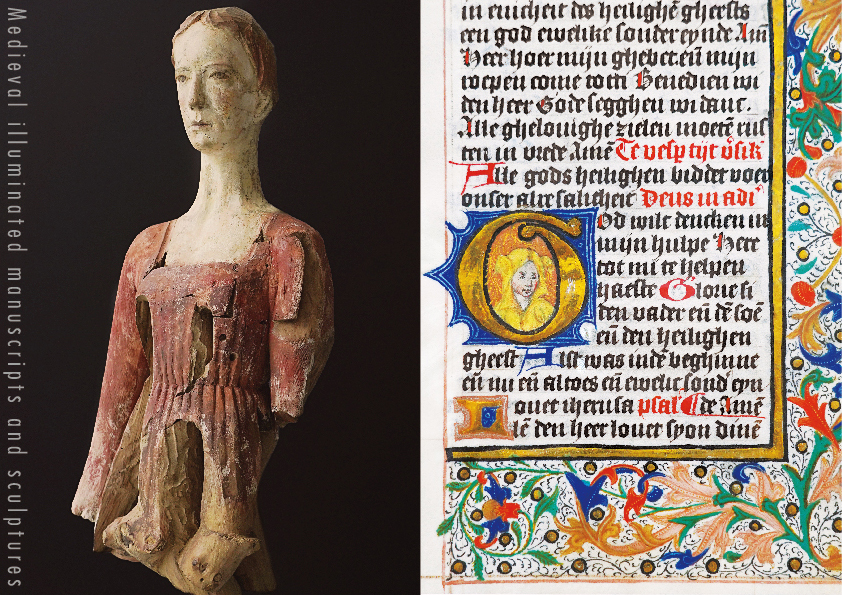 Medieval illuminated manuscripts and sculptures
in einicheit des heilighē gheests
een god ewelike sonder eynde Am̄
Heer hoer mijn ghebet eñ mijn
roepen come tot di Benedien wi
den heer Gode segghen wi danc.
Alle ghelouighe zielen moetē rus
ten in vrede Amē Te vesp tijt
Alle gods heilighen biddet voer
onser alre salicheit Deus in adi
God wilt dencken in
mijn hulpe Heer
tot mi te helpen
haeste Glorie si
den vader eñ dē soē
eñ den heilighen
gheest Alst was indē beghinne
eñ nu eñ altoes eñ ewelic sond eyn
ouet iherusa psal de Amē
lē den heer louet syon dinē